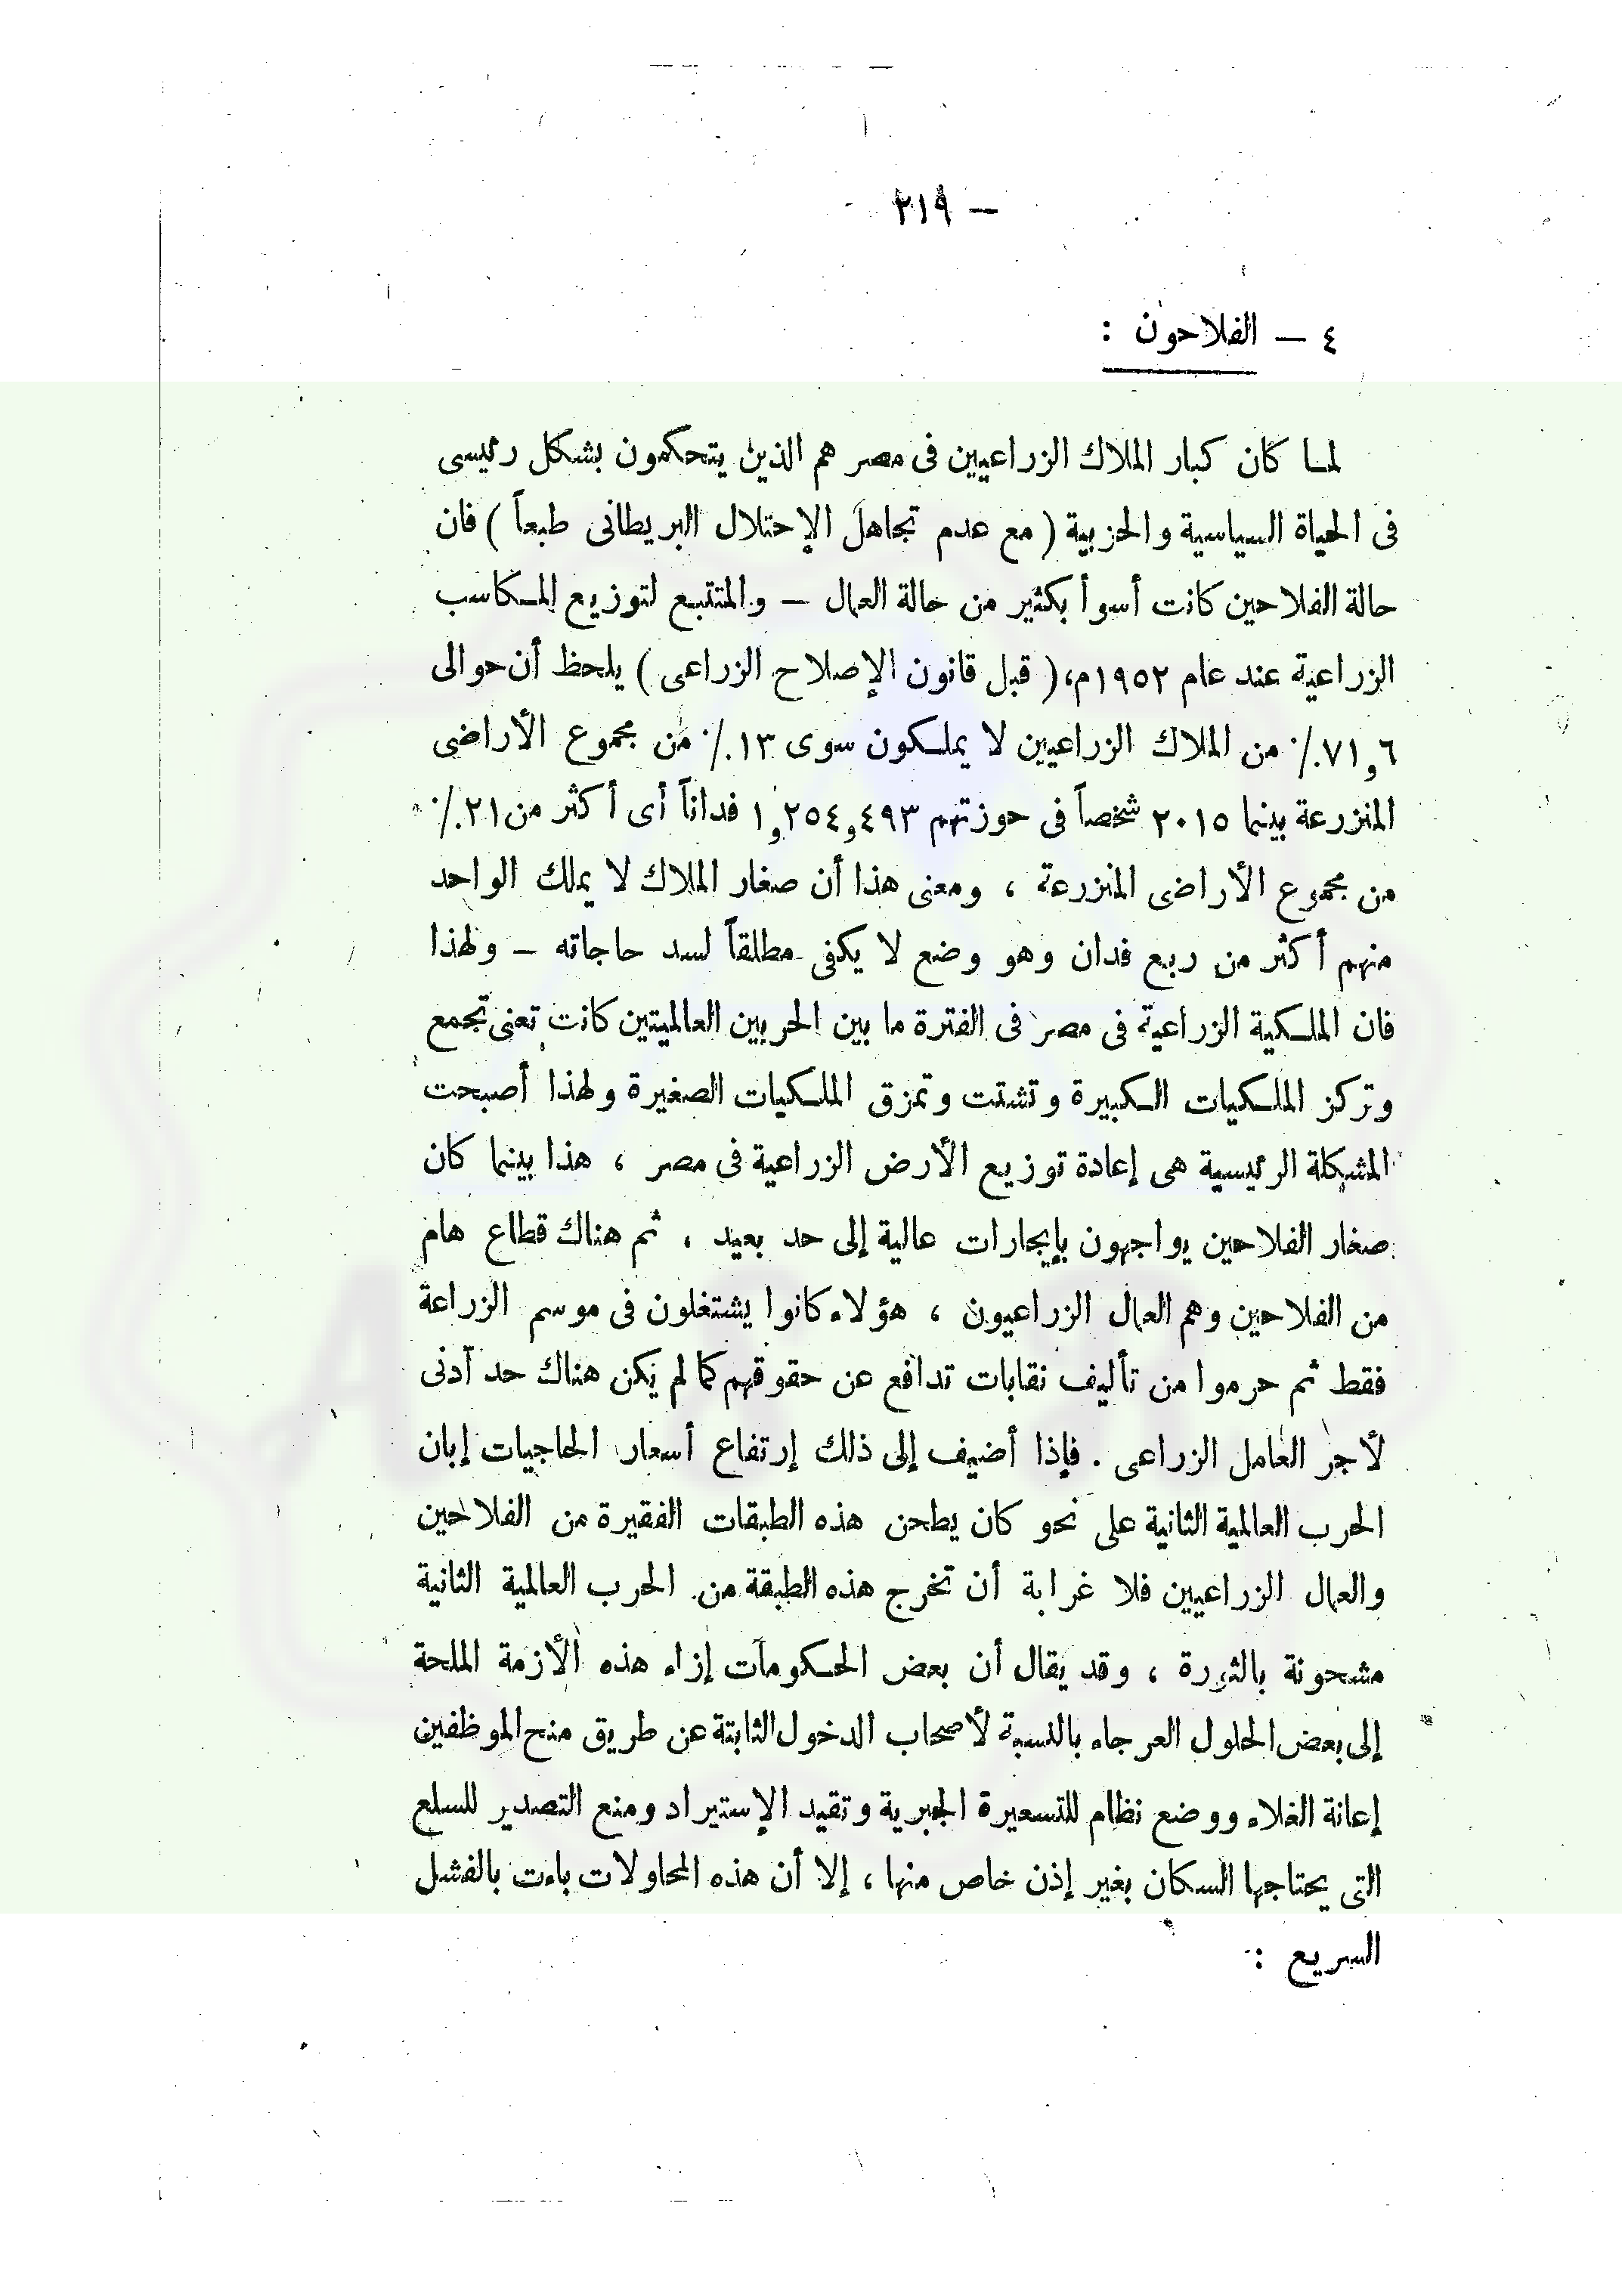 — ٢١٩ -
٤ — الفلاحون :
لما كان كبار الملاك الزراعيين فى مصر هم الذين يتحكمون بشكل رئيسى
فى الحياة السياسية والحزبية ( مع عدم تجاهل الإحتلال البريطانى طبعاً ) فان
حالة الفلاحين كانت أسوأ بكثير من حالة العمال — والمتتبع لتوزيع المكاسب
الزراعية عند عام ١٩٥٢م، ( قبل قانون الإصلاح الزراعى ) يلحظ أن حوالى
٧١و٦٪ من الملاك الزراعيين لا يملكون سوى ١٣٪ من مجموع الأراضى
المنزرعة بينما ٢٠١٥ شخصاً فى حوزتهم ١و٢٥٤و٤٩٣ فداناً أى أكثر من ٢١٪
من مجموع الأراضى المنزرعة ، ومعنى هذا أن صغار الملاك لا يملك الواحد
منهم أكثر من ربع فدان وهو وضع لا يكفى مطلقاً لسد حاجاته — ولهذا
فان الملكية الزراعية فى مصر فى الفترة ما بين الحربين العالميتين كانت تعنى تجمع
وتركز الملكيات الكبيرة وتشتت وتمزق الملكيات الصغيرة ولهذا أصبحت
المشكلة الرئيسية هى إعادة توزيع الأرض الزراعية فى مصر ، هذا بينما كان
صغار الفلاحين يواجهون بإيجارات عالية إلى حد بعيد ، ثم هناك قطاع هام
من الفلاحين وهم العمال الزراعيون ، هؤلاء كانوا يشتغلون فى موسم الزراعة
فقط ثم حرموا من تأليف نقابات تدافع عن حقوقهم كما لم يكن هناك حد أدنى
لأجر العامل الزراعى . فإذا أضيف إلى ذلك إرتفاع أسعار الحاجيات إبان
الحرب العالمية الثانية على نحو كان يطحن هذه الطبقات الفقيرة من الفلاحين
والعمال الزراعيين فلا غرابة أن تخرج هذه الطبقة من الحرب العالمية الثانية
مشحونة بالثورة ، وقد يقال أن بعض الحكومات إزاء هذه الأزمة الملحة
إلى بعض الحلول العرجاء بالنسبة لأصحاب الدخول الثابتة عن طريق منح الموظفين
إعانة الغلاء ووضع نظام للتسعيرة الجبرية وتقيد الإستيراد ومنع التصدير للسلع
التى يحتاجها السكان بغير إذن خاص منها ، إلا أن هذه المحاولات باءت بالفشل
السريع :